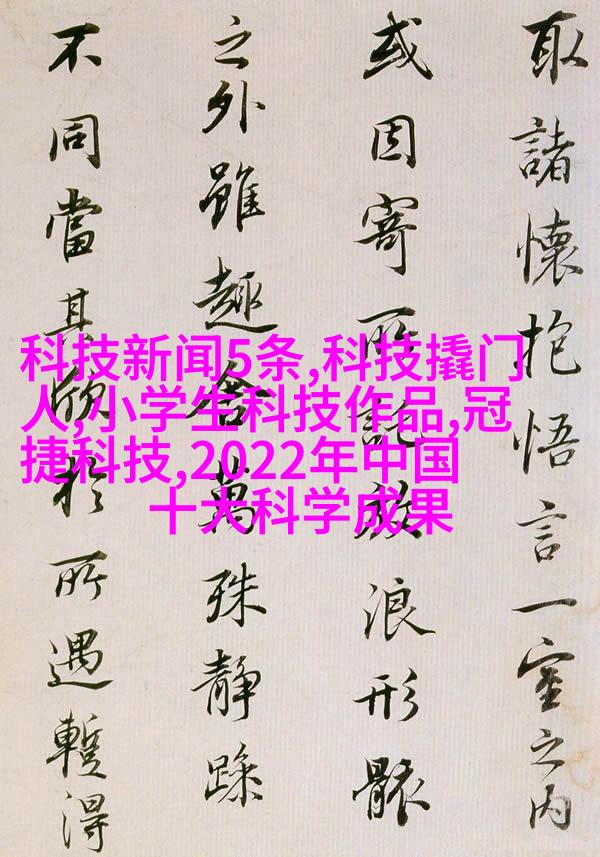 取諸懷抱悟言一室之内
或因寄所託放浪形骸
之外雖趣舍萬殊静躁
不同當其欣於所遇蹔得
科技新闻5条,科技撬门
人,小学生科技作品,冠
捷科技,2022年中国
十大科学成果